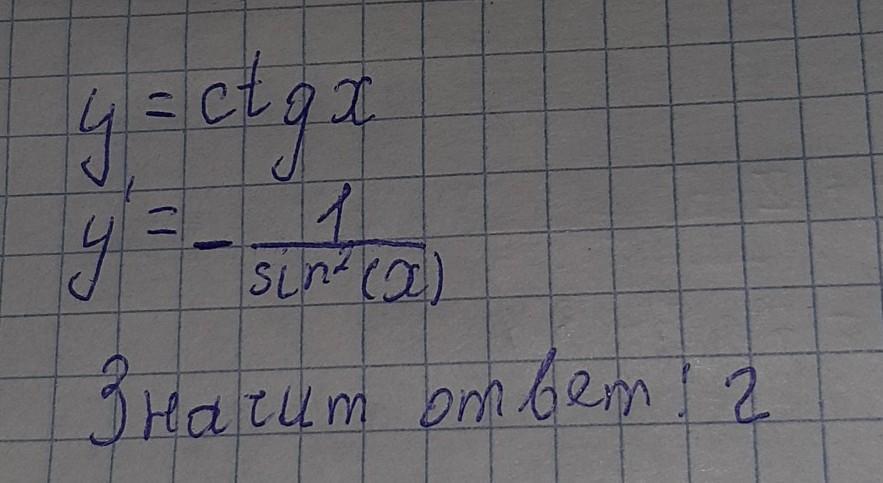 y = ctgx
y' = - 1/sin²(x)
Значит ответ: 2